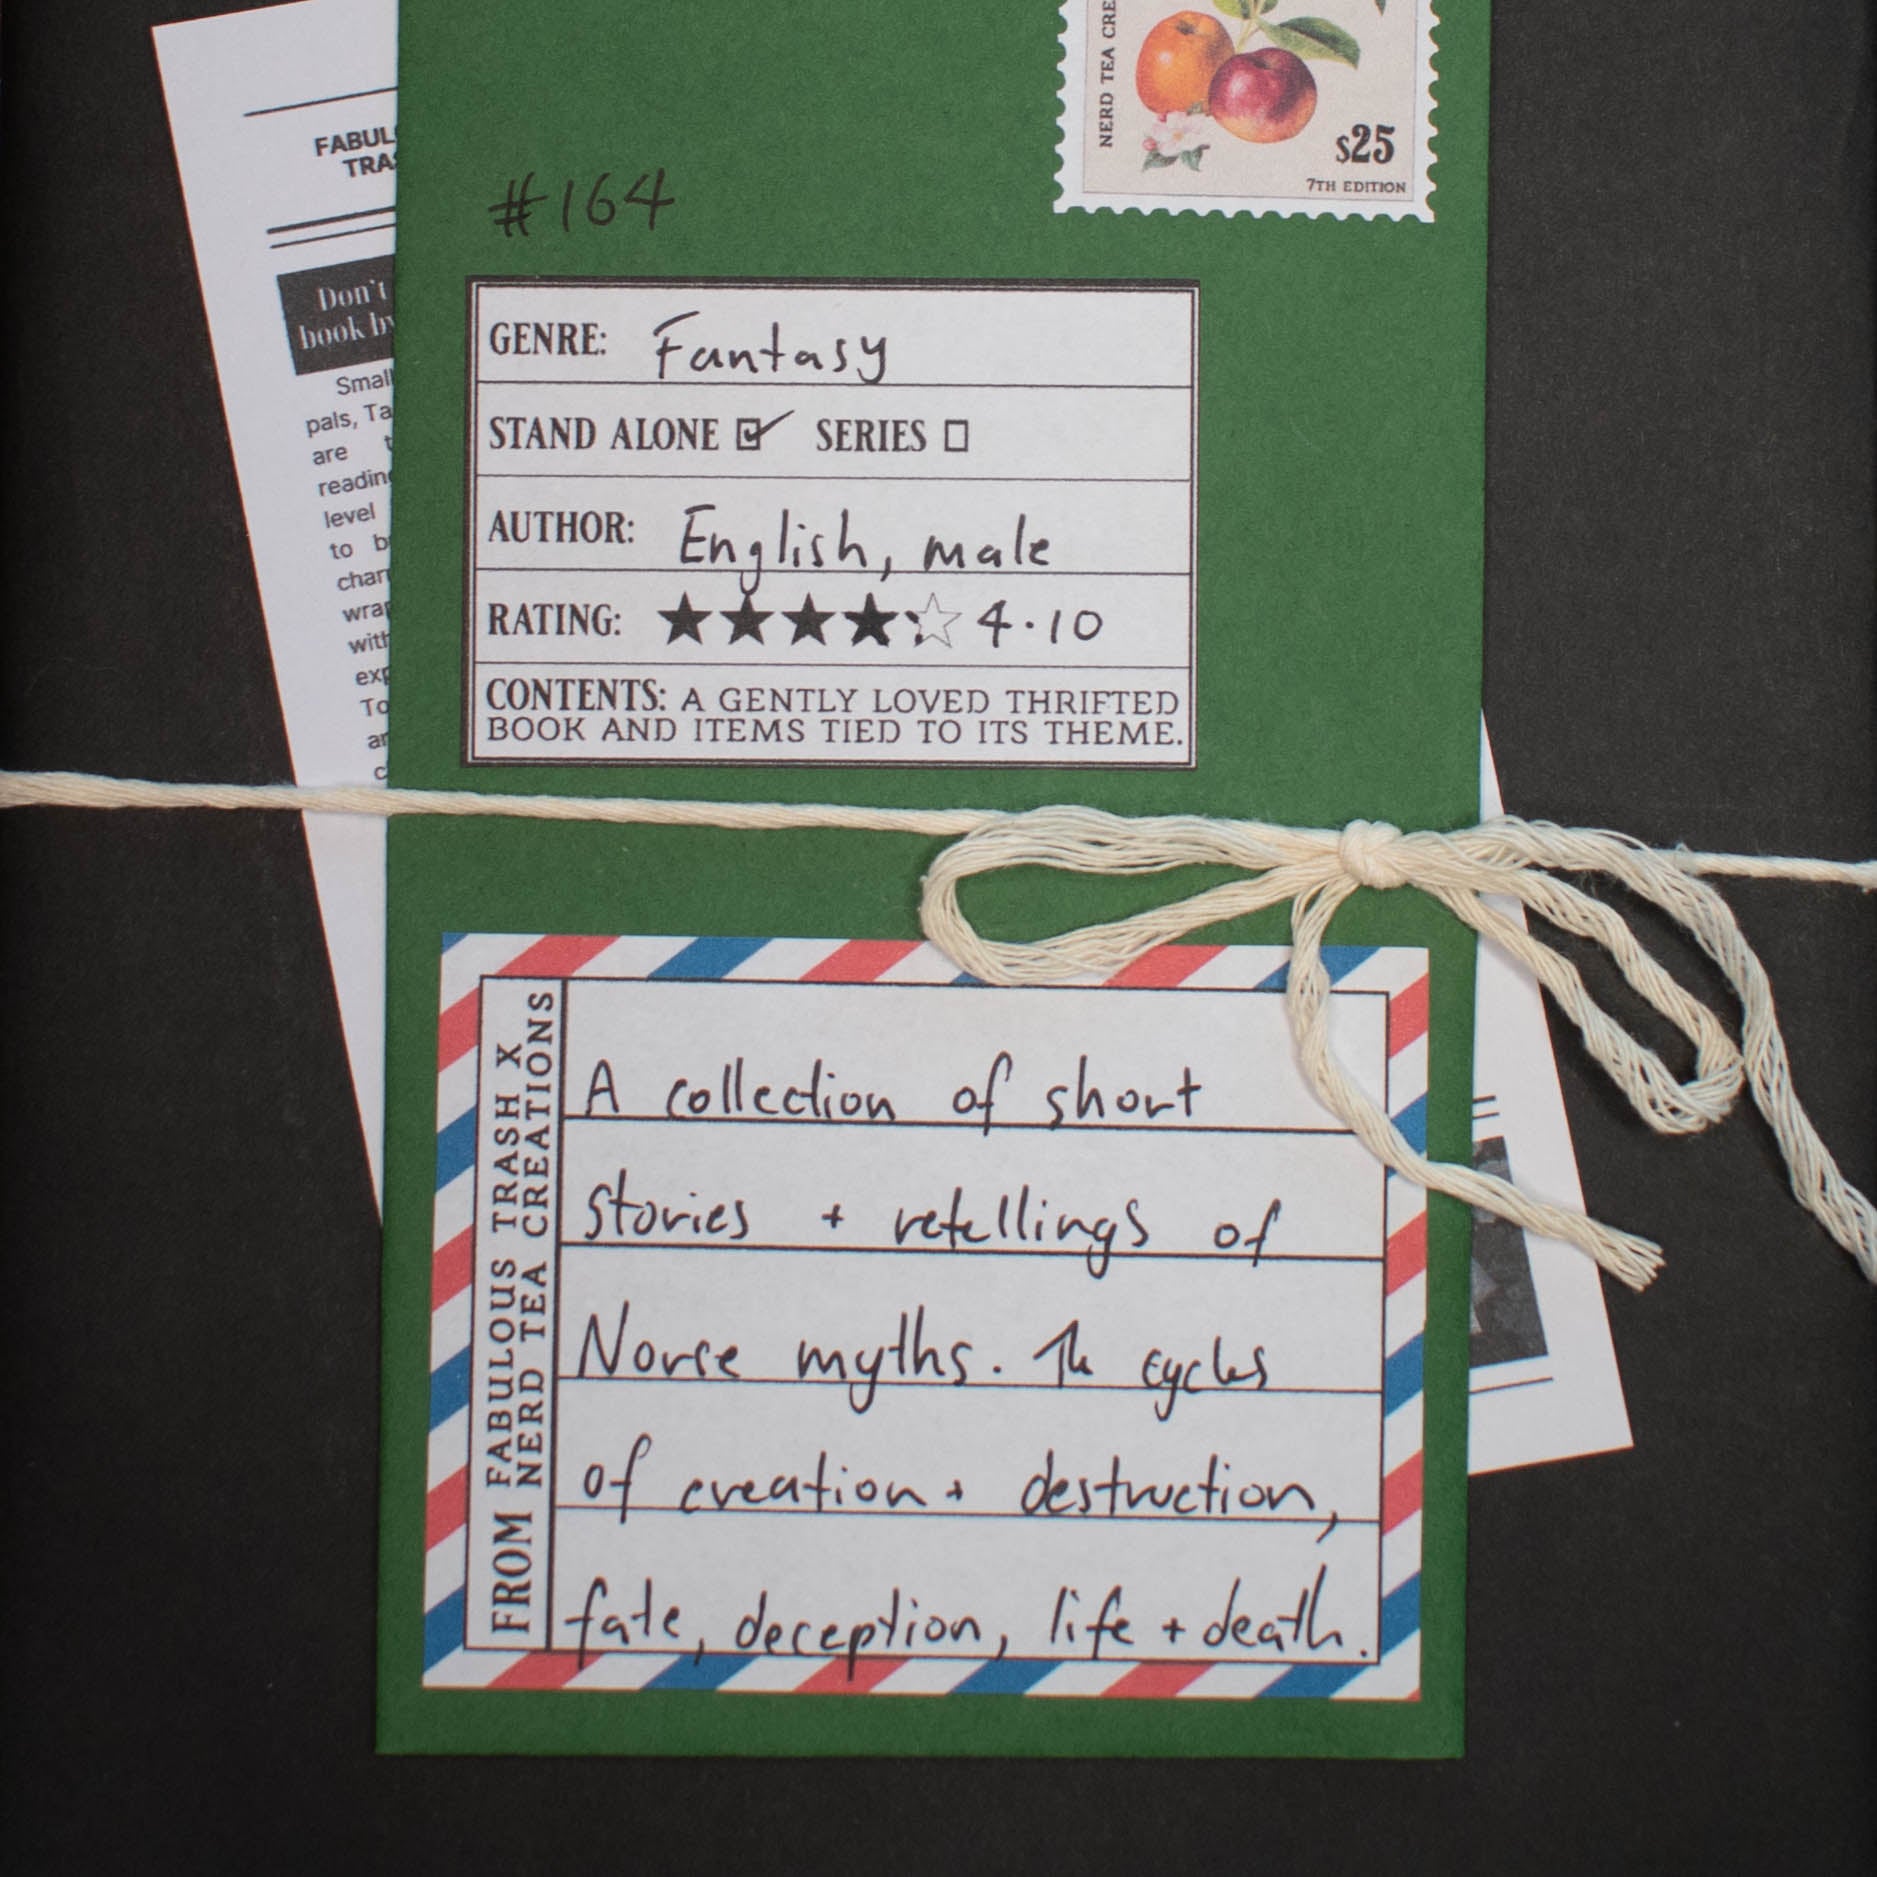 FABUL
TRA
Don't
book by
Small
pals, Ta
are t
reading
level
to b
char
wrap
with
exp
To
ar
c
NERD TEA CRE
$25
7TH EDITION
#164
GENRE: Fantasy
STAND ALONE SERIES
AUTHOR: English, male
RATING: 4.10
CONTENTS: A GENTLY LOVED THRIFTED
BOOK AND ITEMS TIED TO ITS THEME.
FROM FABULOUS TRASH X
NERD TEA CREATIONS
A collection of short
stories + retellings of
Norse myths. The cycles
of creation + destruction,
fate, deception, life + death.